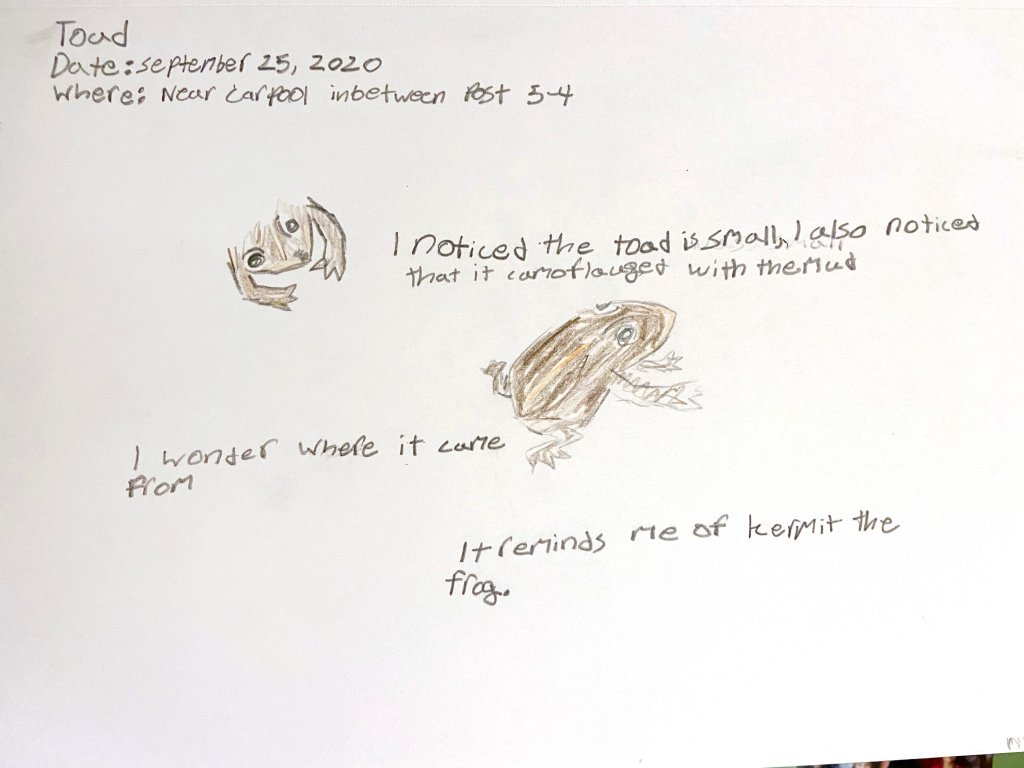 Toad
Date: September 25, 2020
Where: Near Carpool inbetween Post 5-4
I noticed the toad is small, I also noticed
that it camoflauged with the Mud
I wonder where it came
from
It reminds me of kermit the
frog.